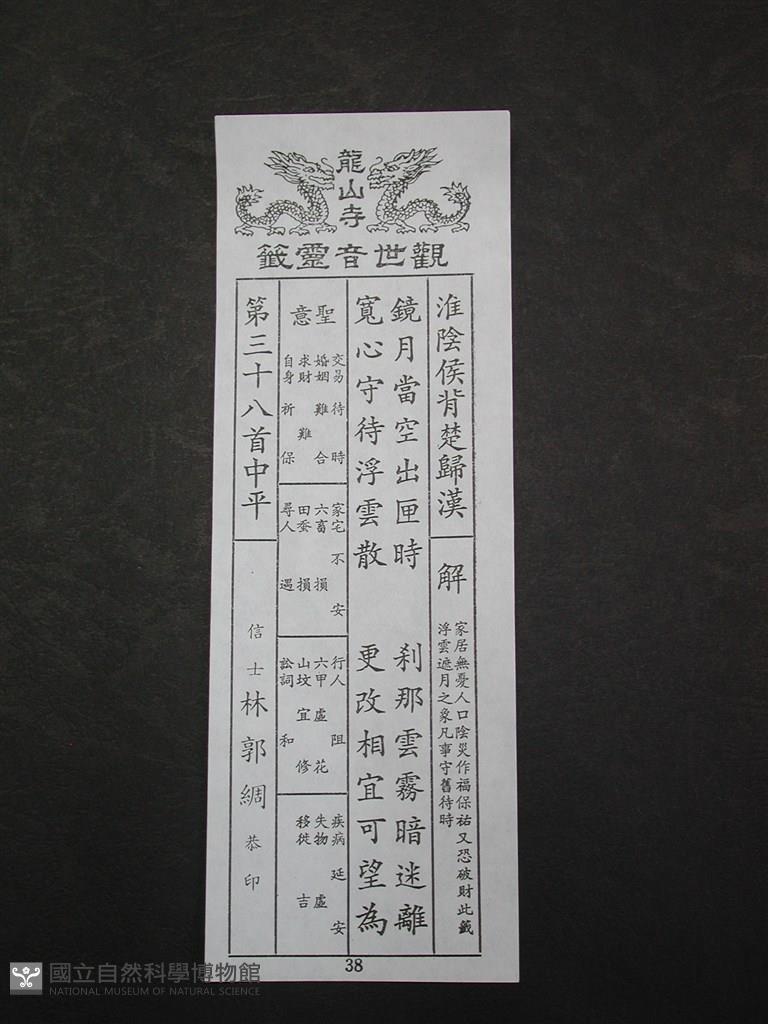 龍山寺
觀世音靈籤
淮陰侯背楚歸漢
解
家居無憂人口陰災作福保祐又恐破財此籤
浮雲遮月之象凡事守舊待時
鏡月當空出匣時 剎那雲霧暗迷離
寬心守待浮雲散 更改相宜可望為
聖意
交易待時
婚姻難合
求財難
自身祈保
家宅不安
六畜損
田蚕損
尋人遇
行人阻
六甲虛花
山坟宜修
訟詞和
疾病延安
失物虛
移徙吉
第三十八首中平
信士林郭綢恭印
38
國立自然科學博物館
NATIONAL MUSEUM OF NATURAL SCIENCE